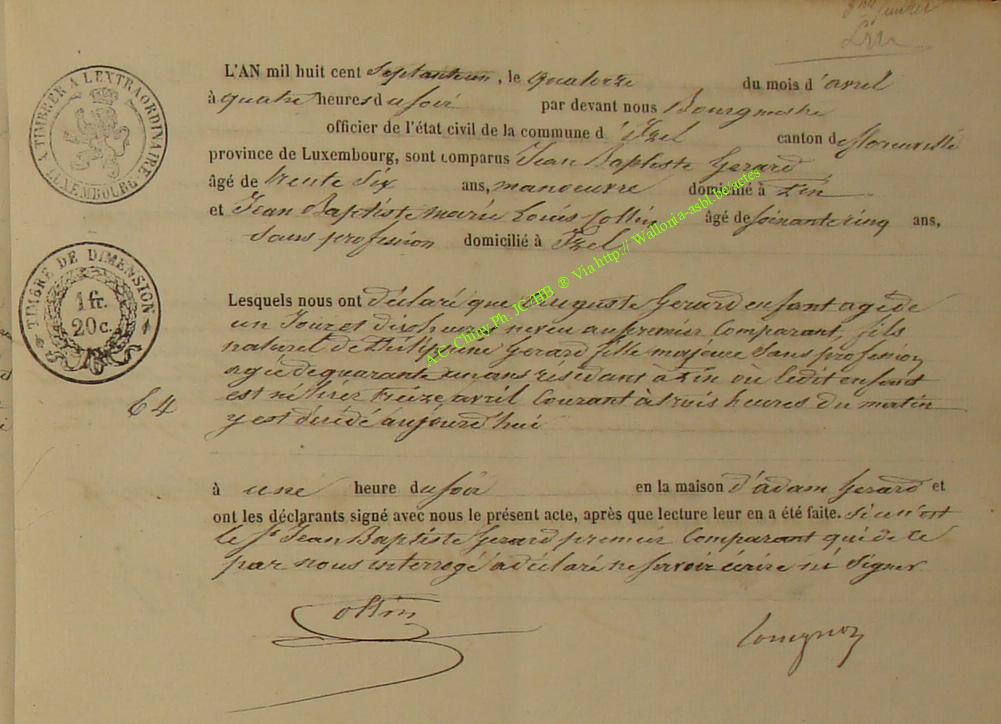 A TIMBRER A L'EXTRAORDINAIRE
LUXEMBOURG
L'AN mil huit cent septanteun, le quatorze du mois d'avril
à quatre heures du soir par devant nous Bourgmestre
officier de l'état civil de la commune d'Izel canton de florenville
province de Luxembourg, sont comparus Jean Baptiste Gerard
âgé de trente six ans, manoeuvre domicilié à Pin
et Jean Baptiste Marie Louis Collin âgé de soixante cinq ans,
sans profession domicilié à Izel
TIMBRE DE DIMENSION
1 fr.
20c.
Lesquels nous ont déclaré que Auguste Gerard enfant agé de
un Jour et dix heures neveu au premier Comparant, fils
naturel de Gerard fille majeure Sans profession
agée de quarante un ans residant à Pin où ledit enfant
est né hier treize avril Courant à trois heures du matin
y est décédé aujourd'hui
64
à une heure du soir en la maison d'adam Gerard et
ont les déclarants signé avec nous le présent acte, après que lecture leur en a été faite. Si ce n'est
le Sr Jean Baptiste Gerard premier Comparant qui de ce
par nous interrogé a déclaré ne savoir écrire ni Signer
Collin
A.C. Chiny Ph. JC HB ® Via http:// Wallonia-asbl.be/actes